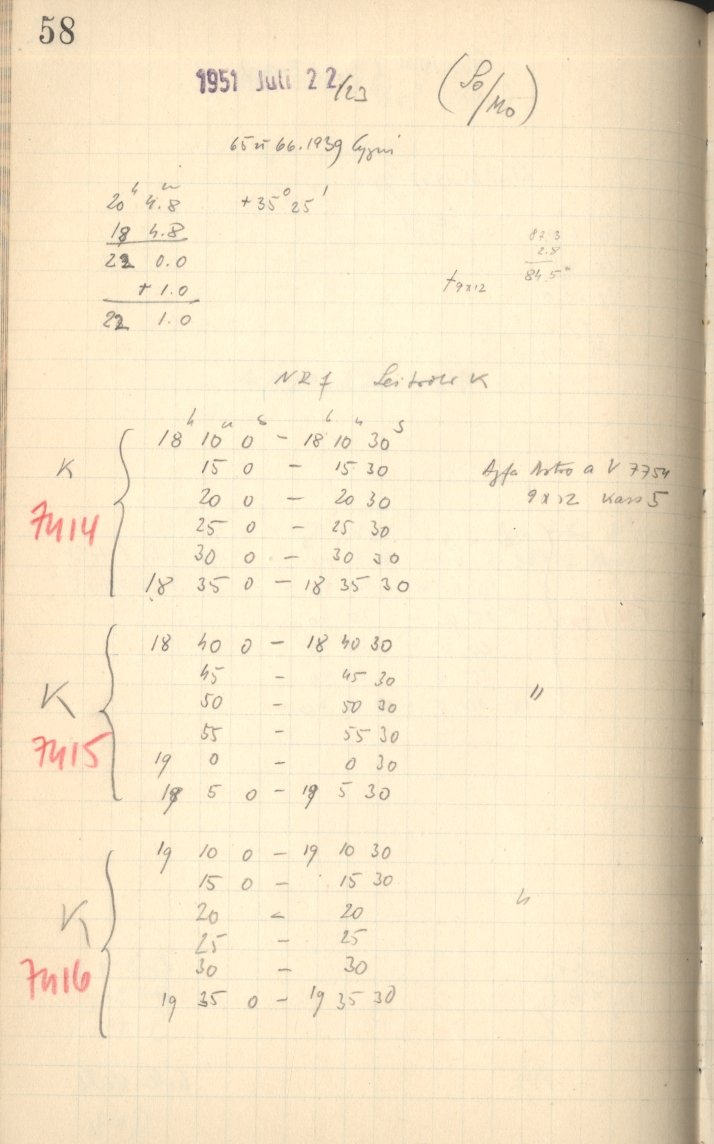 58
1951 Juli 22/23 (So/Mo)
65 u 66.1939 Cygni
20ʰ 4.8ᵐ +35° 25'
18 4.8
22 0.0
+ 1.0
22 1.0
87.3
2.8
84.5
9x12
NZ7 Leitrohr K
K
7414
18ʰ 10ᵐ 0ˢ - 18ʰ 10ᵐ 30ˢ
15 0 - 15 30
20 0 - 20 30
25 0 - 25 30
30 0 - 30 30
18 35 0 - 18 35 30
Agfa Astro a V 7754
9x12 Kass 5
K
7415
18 40 0 - 18 40 30
45 - 45 30
50 - 50 30
55 - 55 30
19 0 - 0 30
19 5 0 - 19 5 30
"
K
7416
19 10 0 - 19 10 30
15 0 - 15 30
20 - 20
25 - 25
30 - 30
19 35 0 - 19 35 30
"